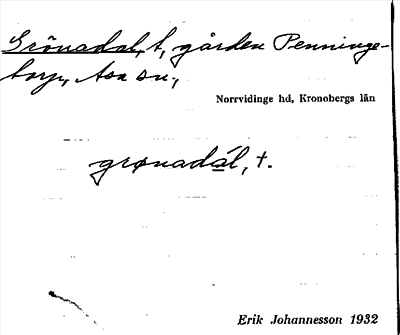 Grönadal, t, gården Penninge-
torp, Asa sn.,
Norrvidinge hd, Kronobergs län
grønadál, t.
Erik Johannesson 1932